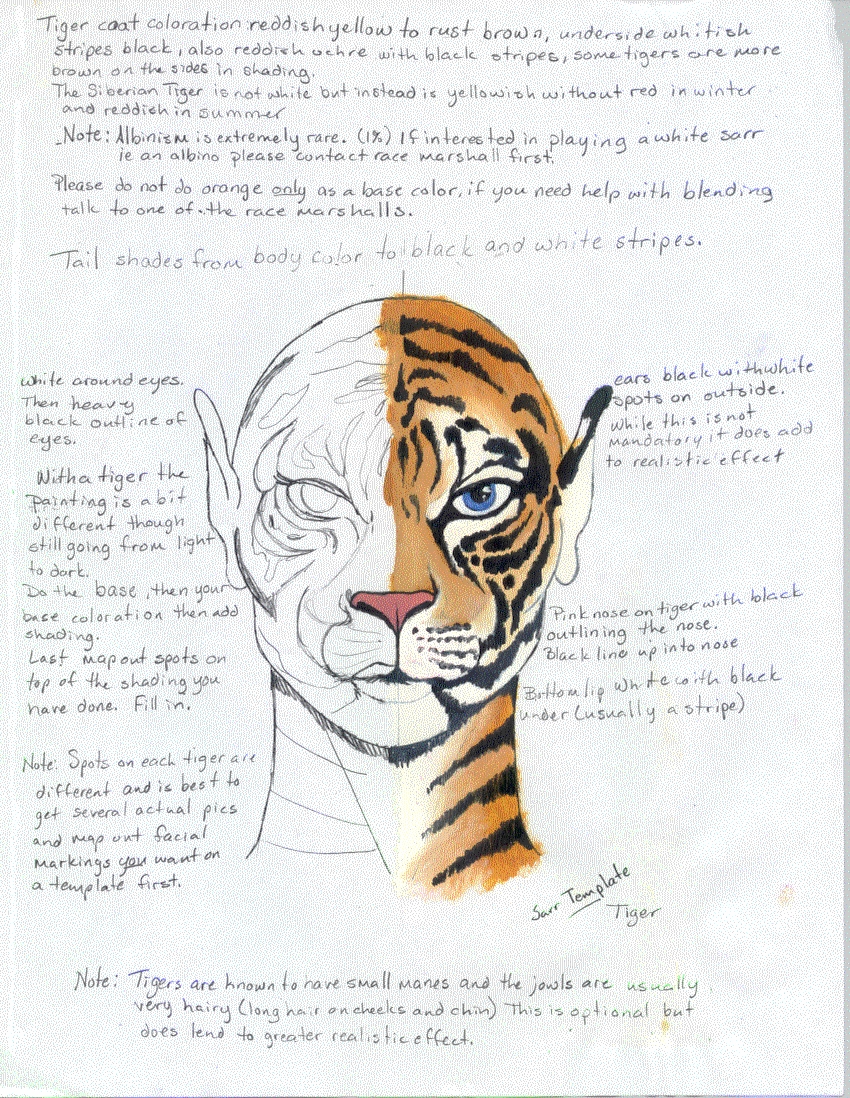 Tiger coat coloration reddish yellow to rust brown, underside whitish
stripes black, also reddish ochre with black stripes, some tigers are more
brown on the sides in shading.
The Siberian Tiger is not white but instead is yellowish without red in winter
and reddish in summer
Note: Albinism is extremely rare. (1%) If interested in playing a white sarr
ie an albino please contact race marshall first.
Please do not do orange only as a base color, if you need help with blending
talk to one of the race marshalls.
Tail shades from body color to black and white stripes.
white around eyes.
Then heavy
black outline of
eyes.
With a tiger the
painting is a bit
different though
still going from light
to dark.
Do the base, then your
base coloration then add
shading.
Last map out spots on
top of the shading you
have done. Fill in.
Note: Spots on each tiger are
different and is best to
get several actual pics
and map out facial
markings you want on
a template first.
ears black with white
spots on outside.
While this is not
mandatory it does add
to realistic effect
Pink nose on tiger with black
outlining the nose.
Black line up into nose
Bottom lip white with black
under (usually a stripe)
Sarr Template
Tiger
Note: Tigers are known to have small manes and the jowls are usually
very hairy (long hair on cheeks and chin) This is optional but
does lend to greater realistic effect.